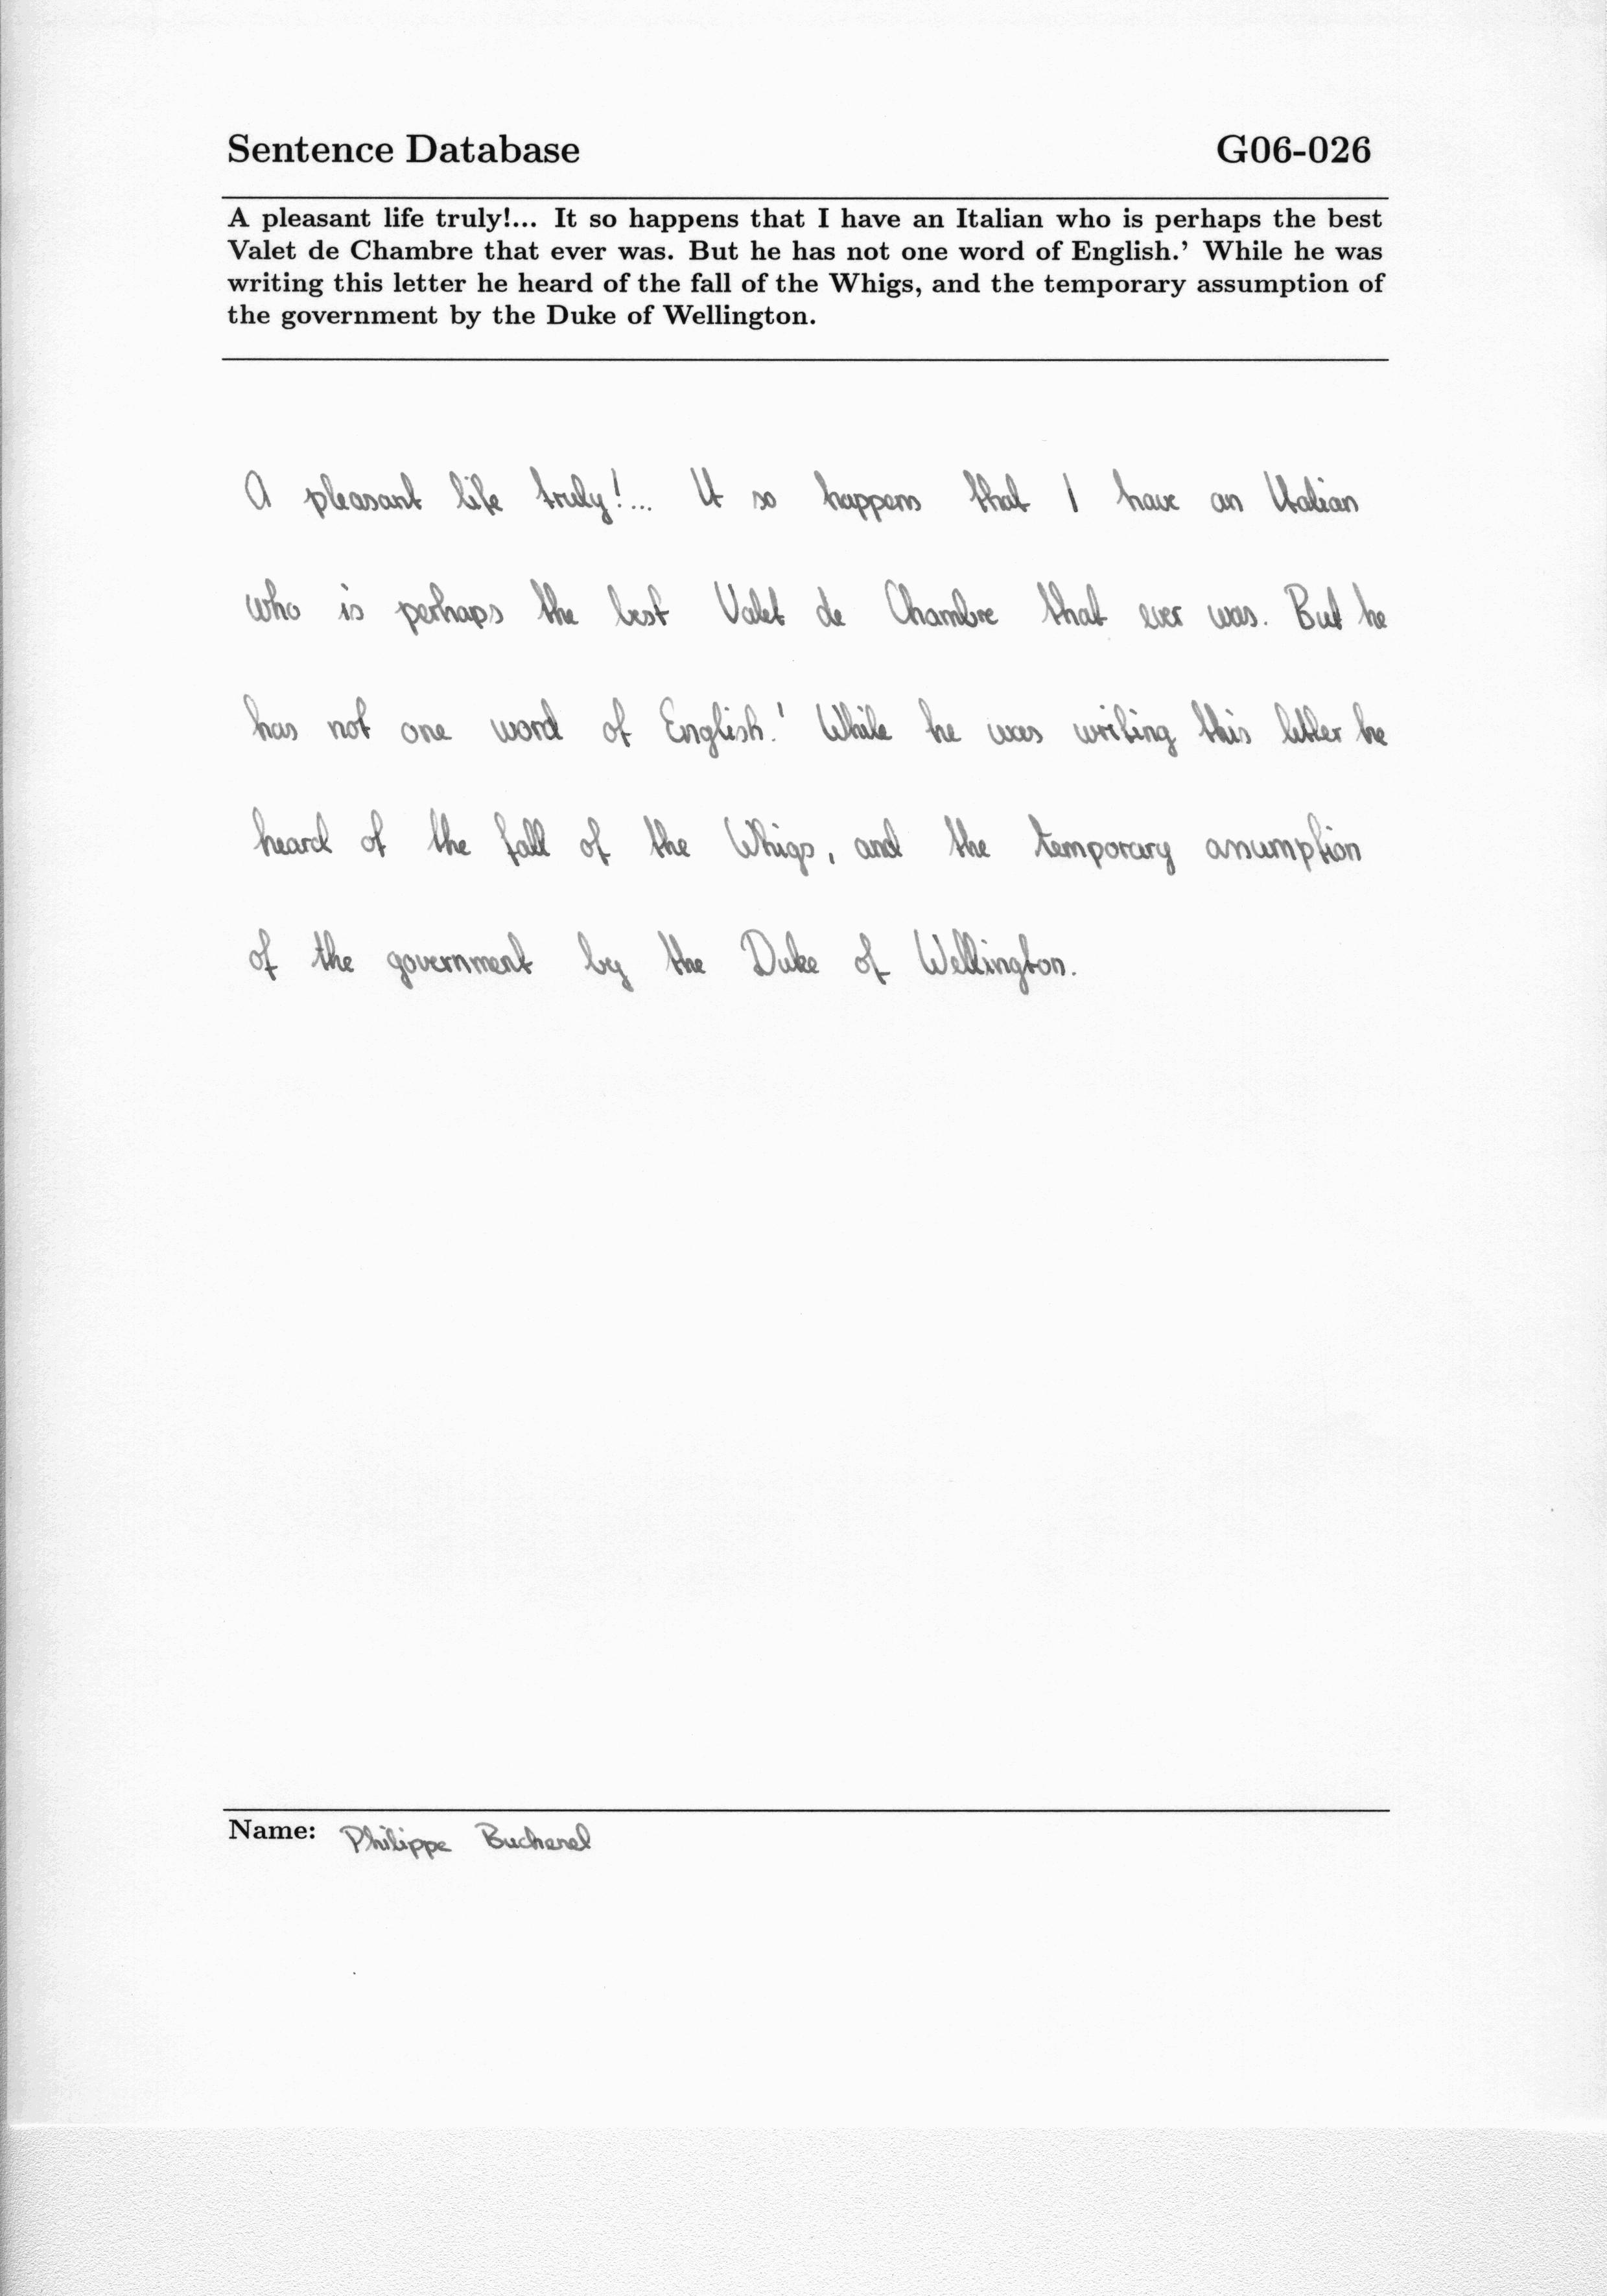 Sentence Database G06-026
A pleasant life truly!... It so happens that I have an Italian who is perhaps the best
Valet de Chambre that ever was. But he has not one word of English.’ While he was
writing this letter he heard of the fall of the Whigs, and the temporary assumption of
the government by the Duke of Wellington.
A pleasant life truly!... It so happens that I have an Italian
who is perhaps the best Valet de Chambre that ever was. But he
has not one word of English.' While he was writing this letter he
heard of the fall of the Whigs, and the temporary assumption
of the government by the Duke of Wellington.
Name: Philippe Bucherel